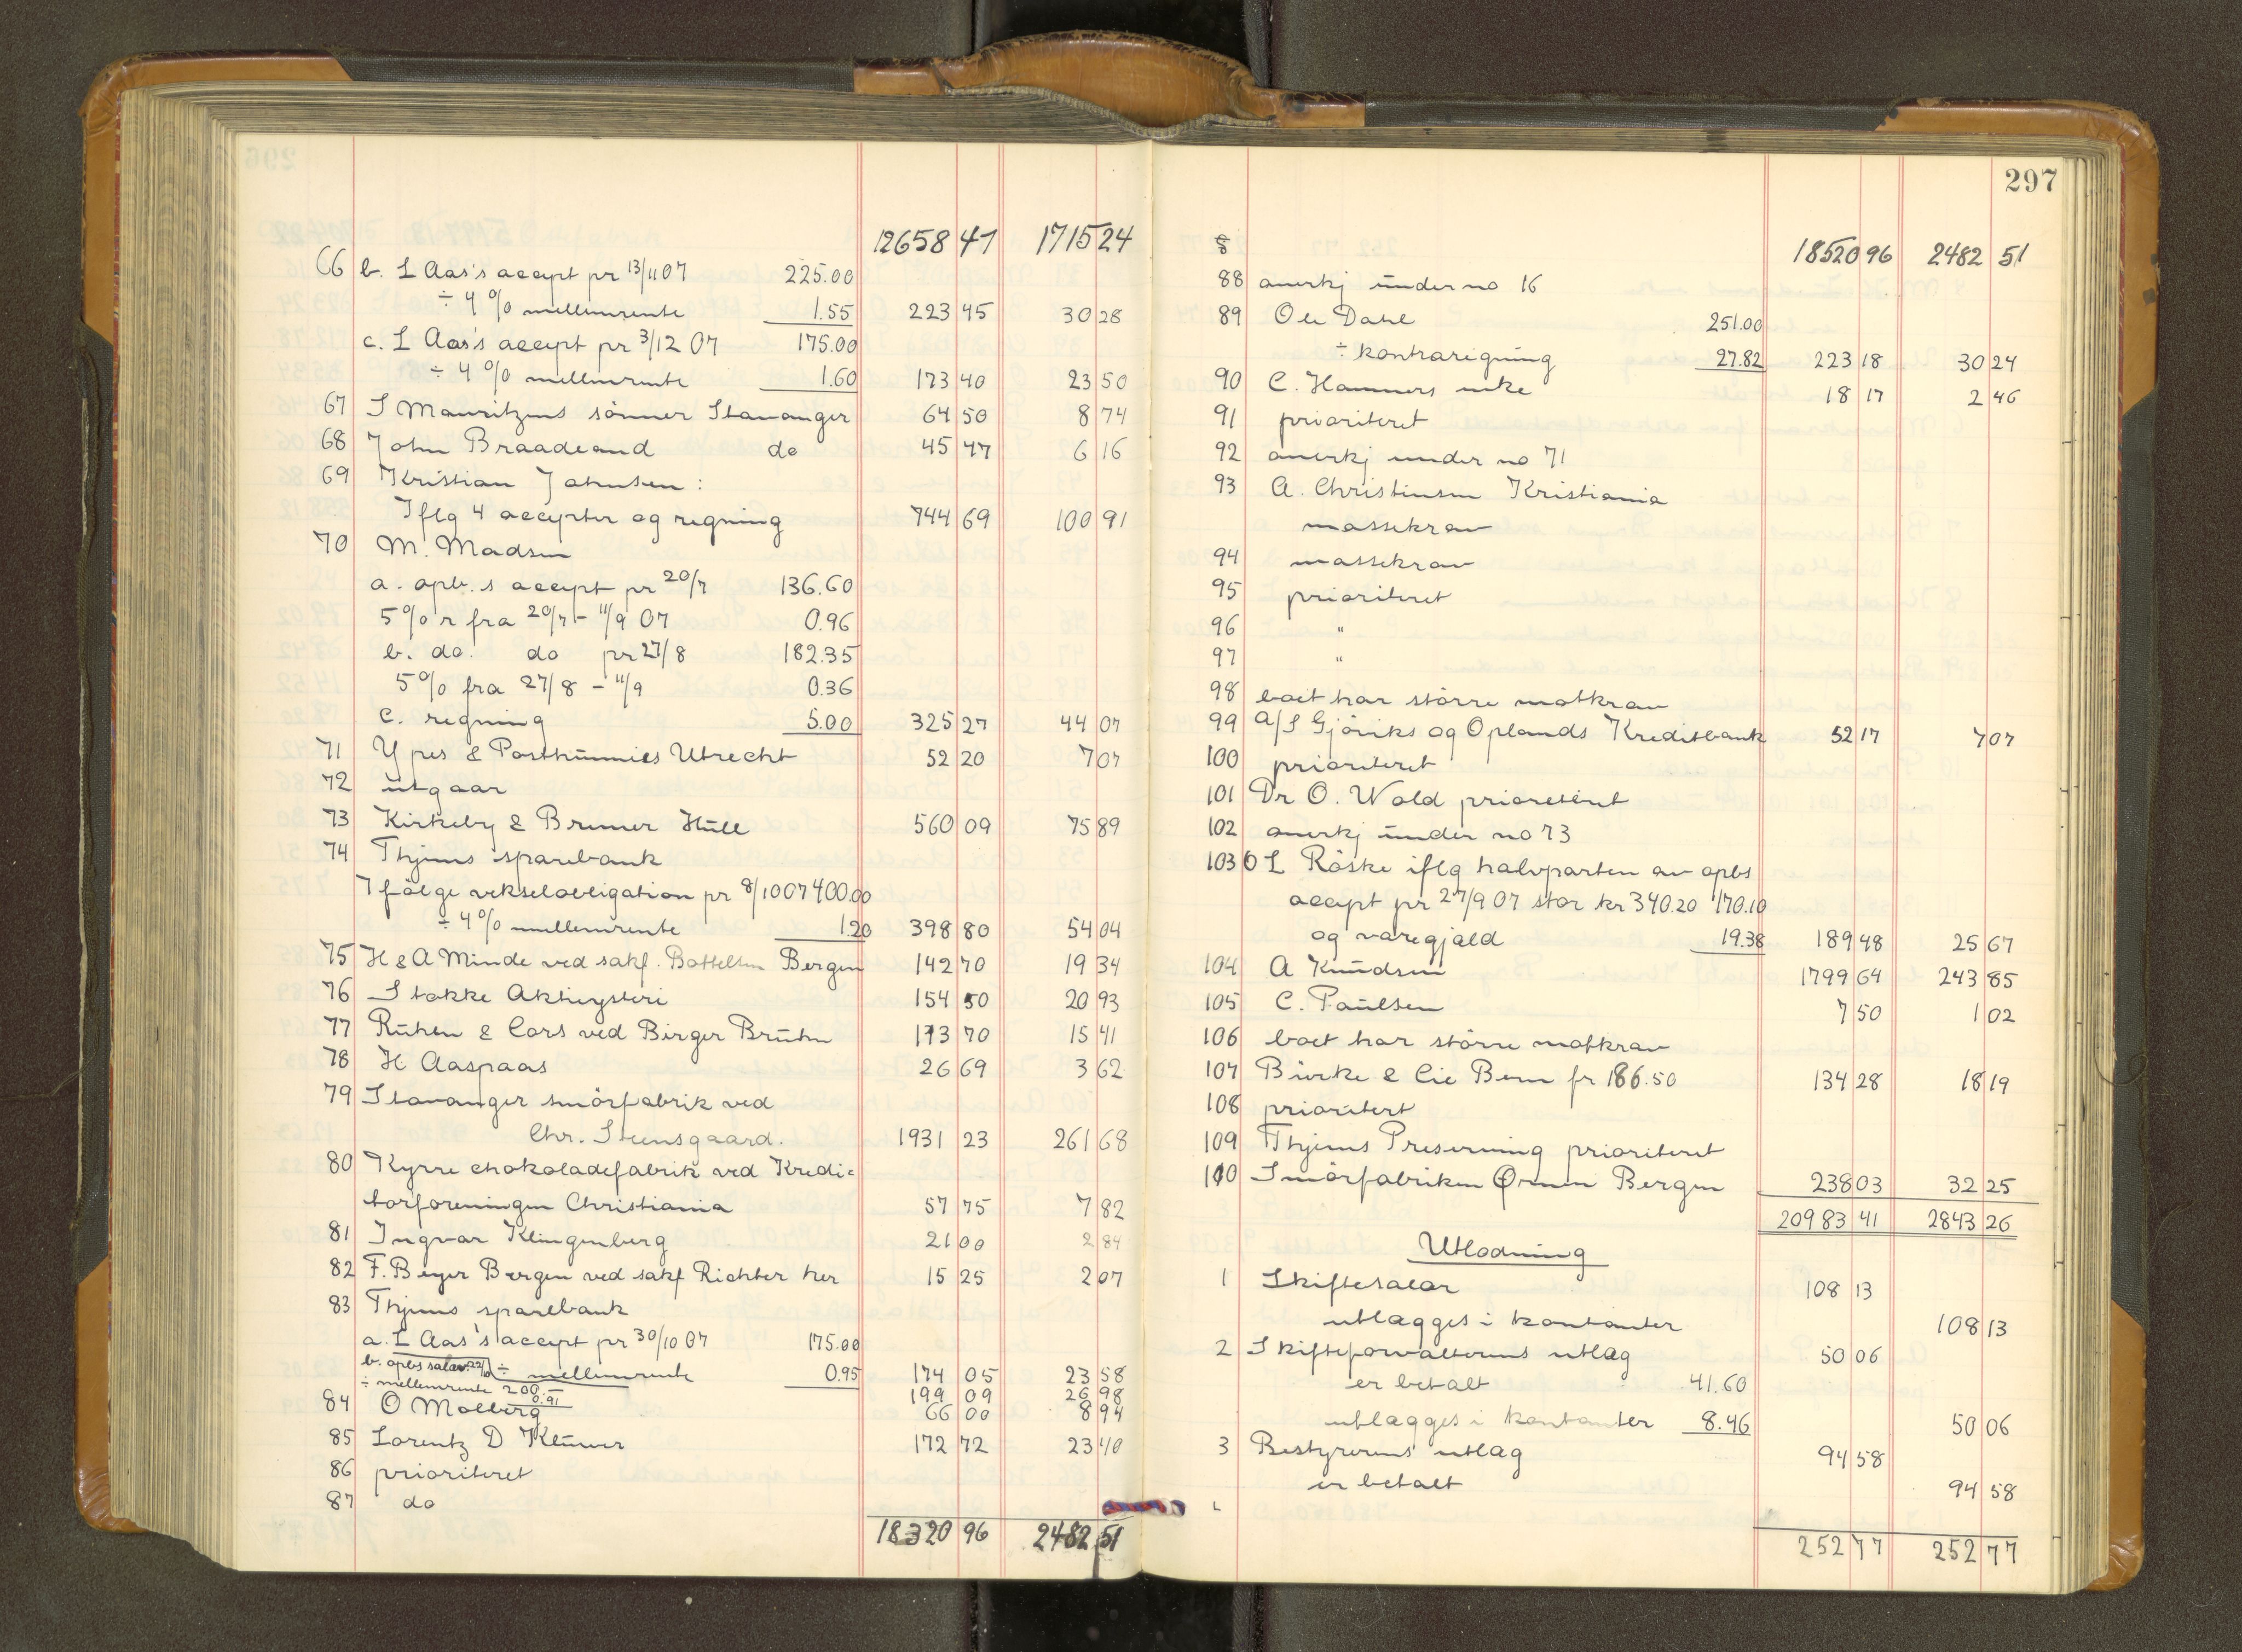 12658 47 1715 24
66 b. L Aas's accept pr 13/11 07 225.00
÷ 4 % mellemrente 1.55 223 45 30 28
c. L Aas's accept pr 3/12 07 175.00
÷ 4 % mellemrente 1.60 173 40 23 50
67 S Mauritzens sönner Stavanger 64 50 8 74
68 John Braadland do 45 47 6 16
69 Kristian Johnsen :
Iflg 4 accepter og regning 744 69 100 91
70 M. Madsen
a. opb.s accept pr 20/7 136.60
5 % r fra 20/7 - 11/9 07 0.96
b. do. do pr 27/8 182.35
5 % fra 27/8 - 11/9 0.36
c. regning 5.00 325 27 44 07
71 Ypes & Posthumies Utrecht 52 20 7 07
72 utgaar
73 Kirkeby & Bremer Hull 560 09 75 89
74 Thjems sparebank
Ifölge vekselobligation pr 8/10 07 400.00
÷ 4 % mellemrente 1.20 398 80 54 04
75 H & A Minde ved sakf. Bottelsen Bergen 142 70 19 34
76 Stokke Aktieysteri 154 50 20 93
77 Ruhen & Cors ved Birger Bruhn 113 70 15 41
78 H Aaspaas 26 69 3 62
79 Stavanger smörfabrik ved
Chr. Steensgaard. 1931 23 261 68
80 Kyrre chokoladefabrik ved Kredi=
torforeningen Christiania 57 75 7 82
81 Ingvar Klingenberg 21 00 2 84
82 F. Beyer Bergen ved sakf Richter her 15 25 2 07
83 Thjems sparebank
a. L Aas's accept pr 30/10 07 175.00
b. opbs solav. 22/10 ÷ mellemrente 0.95 174 05 23 58
÷ mellemrente 200.– 0.91 199 09 26 98
84 O Molberg 66 00 8 94
85 Lorentz D Klüwer 172 72 23 40
86 prioriteret
87 do
18320 96 2482 51
297
18520 96 2482 51
88 anerkj under no 16
89 Ole Dahl 251.00
÷ kontraregning 27.82 223 18 30 24
90 C. Hammers enke 18 17 2 46
91 prioriteret
92 anerkj under no 71
93 A. Christensen Kristiania
massekrav
94 massekrav
95 prioriteret
96 "
97 "
98 boet har större motkrav
99 A/S Gjöviks og Oplands Kreditbank 52 17 7 07
100 prioriteret
101 Dr O. Wold prioriteret
102 anerkj under no 73
103 O L Röske iflg halvparten av opbs
accept pr 27/9 07 stor kr 340.20 170.10
og varegjæld 19.38 189 48 25 67
104 A Knudsen 1799 64 243 85
105 C. Paulsen 7 50 1 02
106 boet har större motkrav
107 Bürke & Cie Bern fr 186.50 134 28 18 19
108 prioritert
109 Thjems Preserving prioriteret
110 Smörfabriken Ørnen Bergen 238 03 32 25
20983 41 2843 26
Utlodning
1 Skiftesalær 108 13
utlægges i kontanter 108 13
2 Skifteforvalterens utlæg 50 06
er betalt 41.60
utlægges i kontanter 8.46 50 06
3 Bestyrerens utlæg 94 58
er betalt 94 58
252 77 252 77